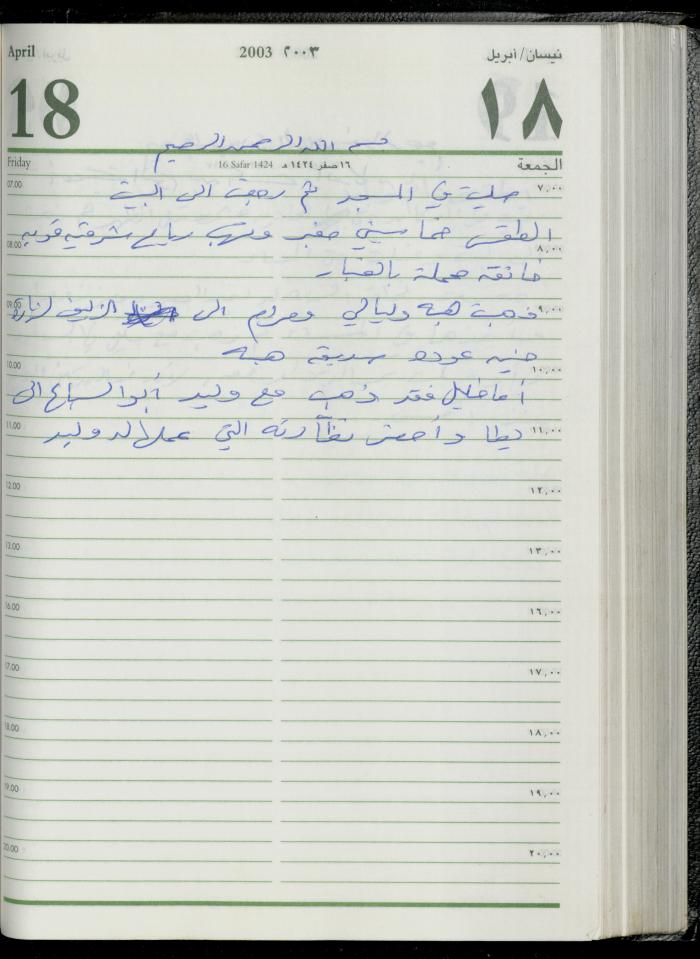 April 2003 ٢٠٠٣ نيسان/أبريل
18 ١٨
بسم الله الرحمن الرحيم
Friday 16 Safar 1424 ١٦ صفر ١٤٢٤ هـ الجمعة
07.00 ٧,٠٠
صليت في المسجد ثم رجعت الى البيت
الطقس خماسيني مغبر وتهب رياح شرقيه قويه
08.00 ٨,٠٠
خانقه محملة بالغبار
09.00 ٩,٠٠
ذهبت هبه وليالي ومرام الى الزيف لزيارة
حنيه عوده صديقة هبه
10.00 ١٠,٠٠
أما خليل فقد ذهب مع وليد أبو السباع الى
11.00 ١١,٠٠
يطا وأحضر نظّارته التي عملها له وليد
12.00 ١٢,٠٠
13.00 ١٣,٠٠
16.00 ١٦,٠٠
17.00 ١٧,٠٠
18.00 ١٨,٠٠
19.00 ١٩,٠٠
20.00 ٢٠,٠٠